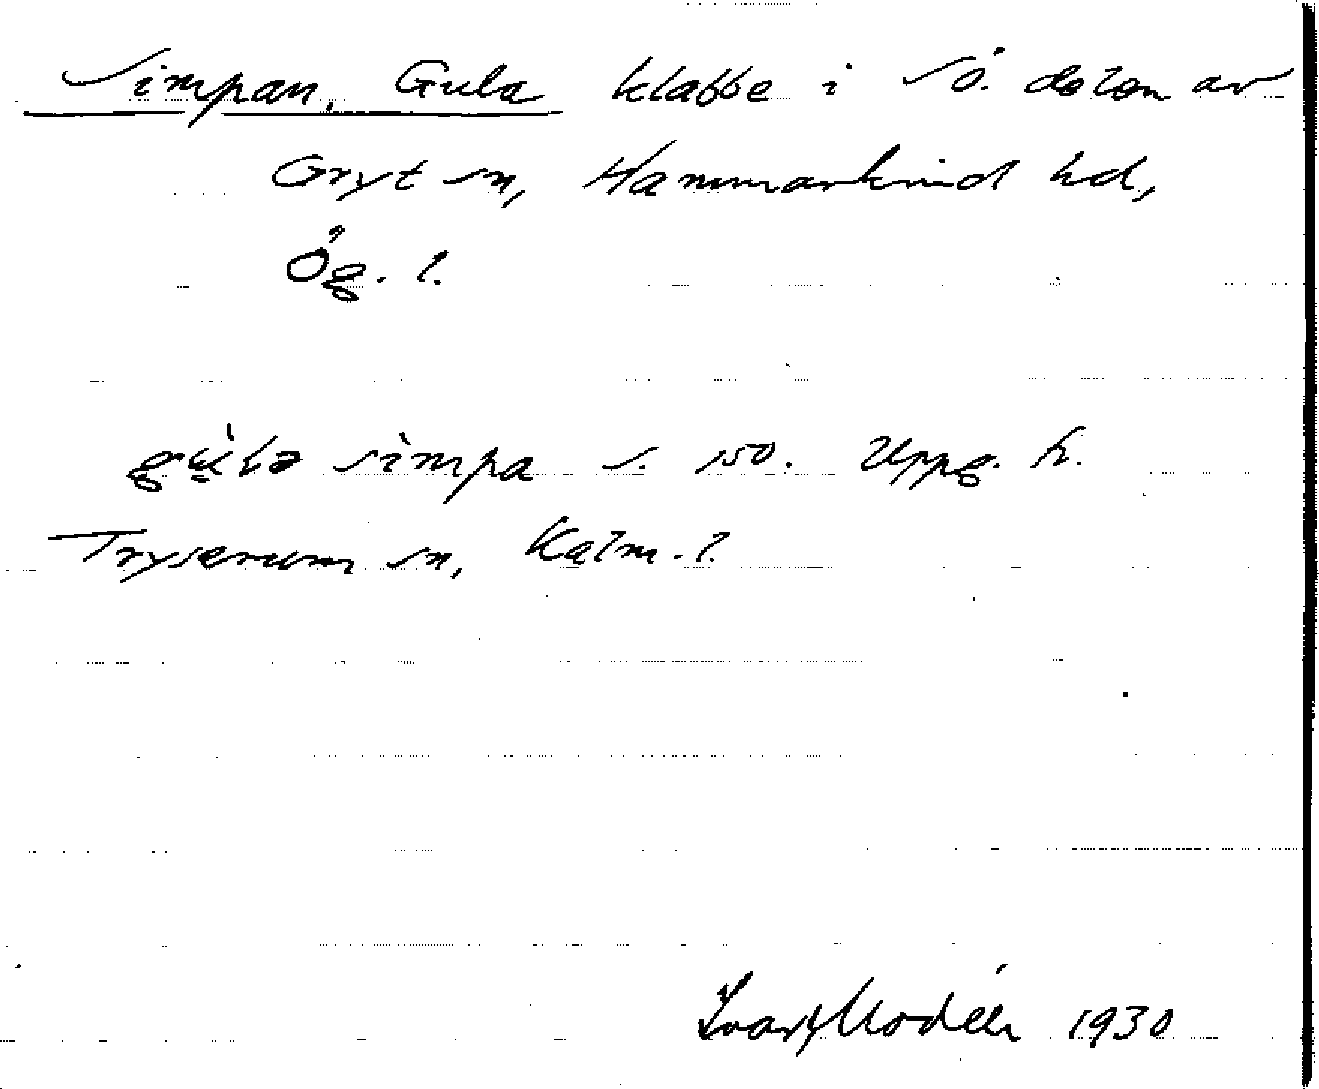 Simpan, Gula klabbe i SÖ. delen av
Gryt sn, Hammarkind hd,
Ög. l.
simpa s. 150. Uppg. fr.
Tryserum sn, Kalm. l.
Ivar Modéer 1930